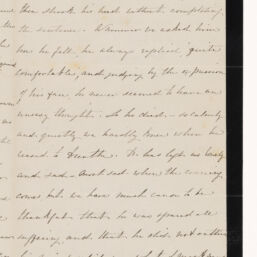 then shook his head without completing
the sentence. Whenever we asked him
how he felt, he always replied, quite
comfortable, and judging by the expression
of his face, he never seemed to have an
uneasy thought. So he died - so calmly
and quietly we hardly knew when he
ceased to breathe. It has left us lonely
and sad - most sad when the evening
comes but we have much cause to be
thankful that he was spared all
suffering and that he did not